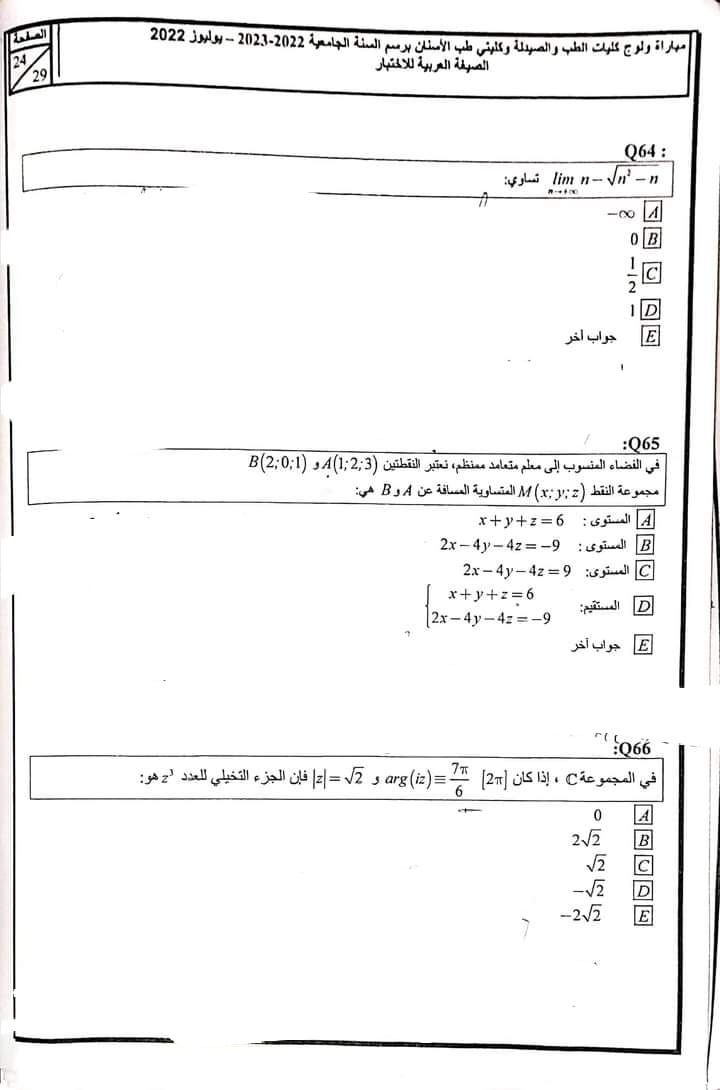 مباراة ولوج كليات الطب والصيدلة وكليتي طب الأسنان برسم السنة الجامعية 2022-2023 – يوليوز 2022
الصيغة العربية للاختبار
الصفحة
24
29
Q64 :
lim n→+∞ n − √(n² − n) تساوي:
A −∞
B 0
C 1/2
D 1
E جواب آخر
Q65:
في الفضاء المنسوب إلى معلم متعامد ممنظم، نعتبر النقطتين A(1;2;3) و B(2;0;1)
مجموعة النقط M(x;y;z) المتساوية المسافة عن A و B هي:
A المستوى : x+y+z=6
B المستوى : 2x−4y−4z=−9
C المستوى: 2x−4y−4z=9
D المستقيم: { x+y+z=6
2x−4y−4z=−9
E جواب آخر
Q66:
في المجموعة ℂ ، إذا كان arg(iz)≡7π/6 [2π] و |z|=√2 فإن الجزء التخيلي للعدد z³ هو:
A 0
B 2√2
C √2
D −√2
E −2√2